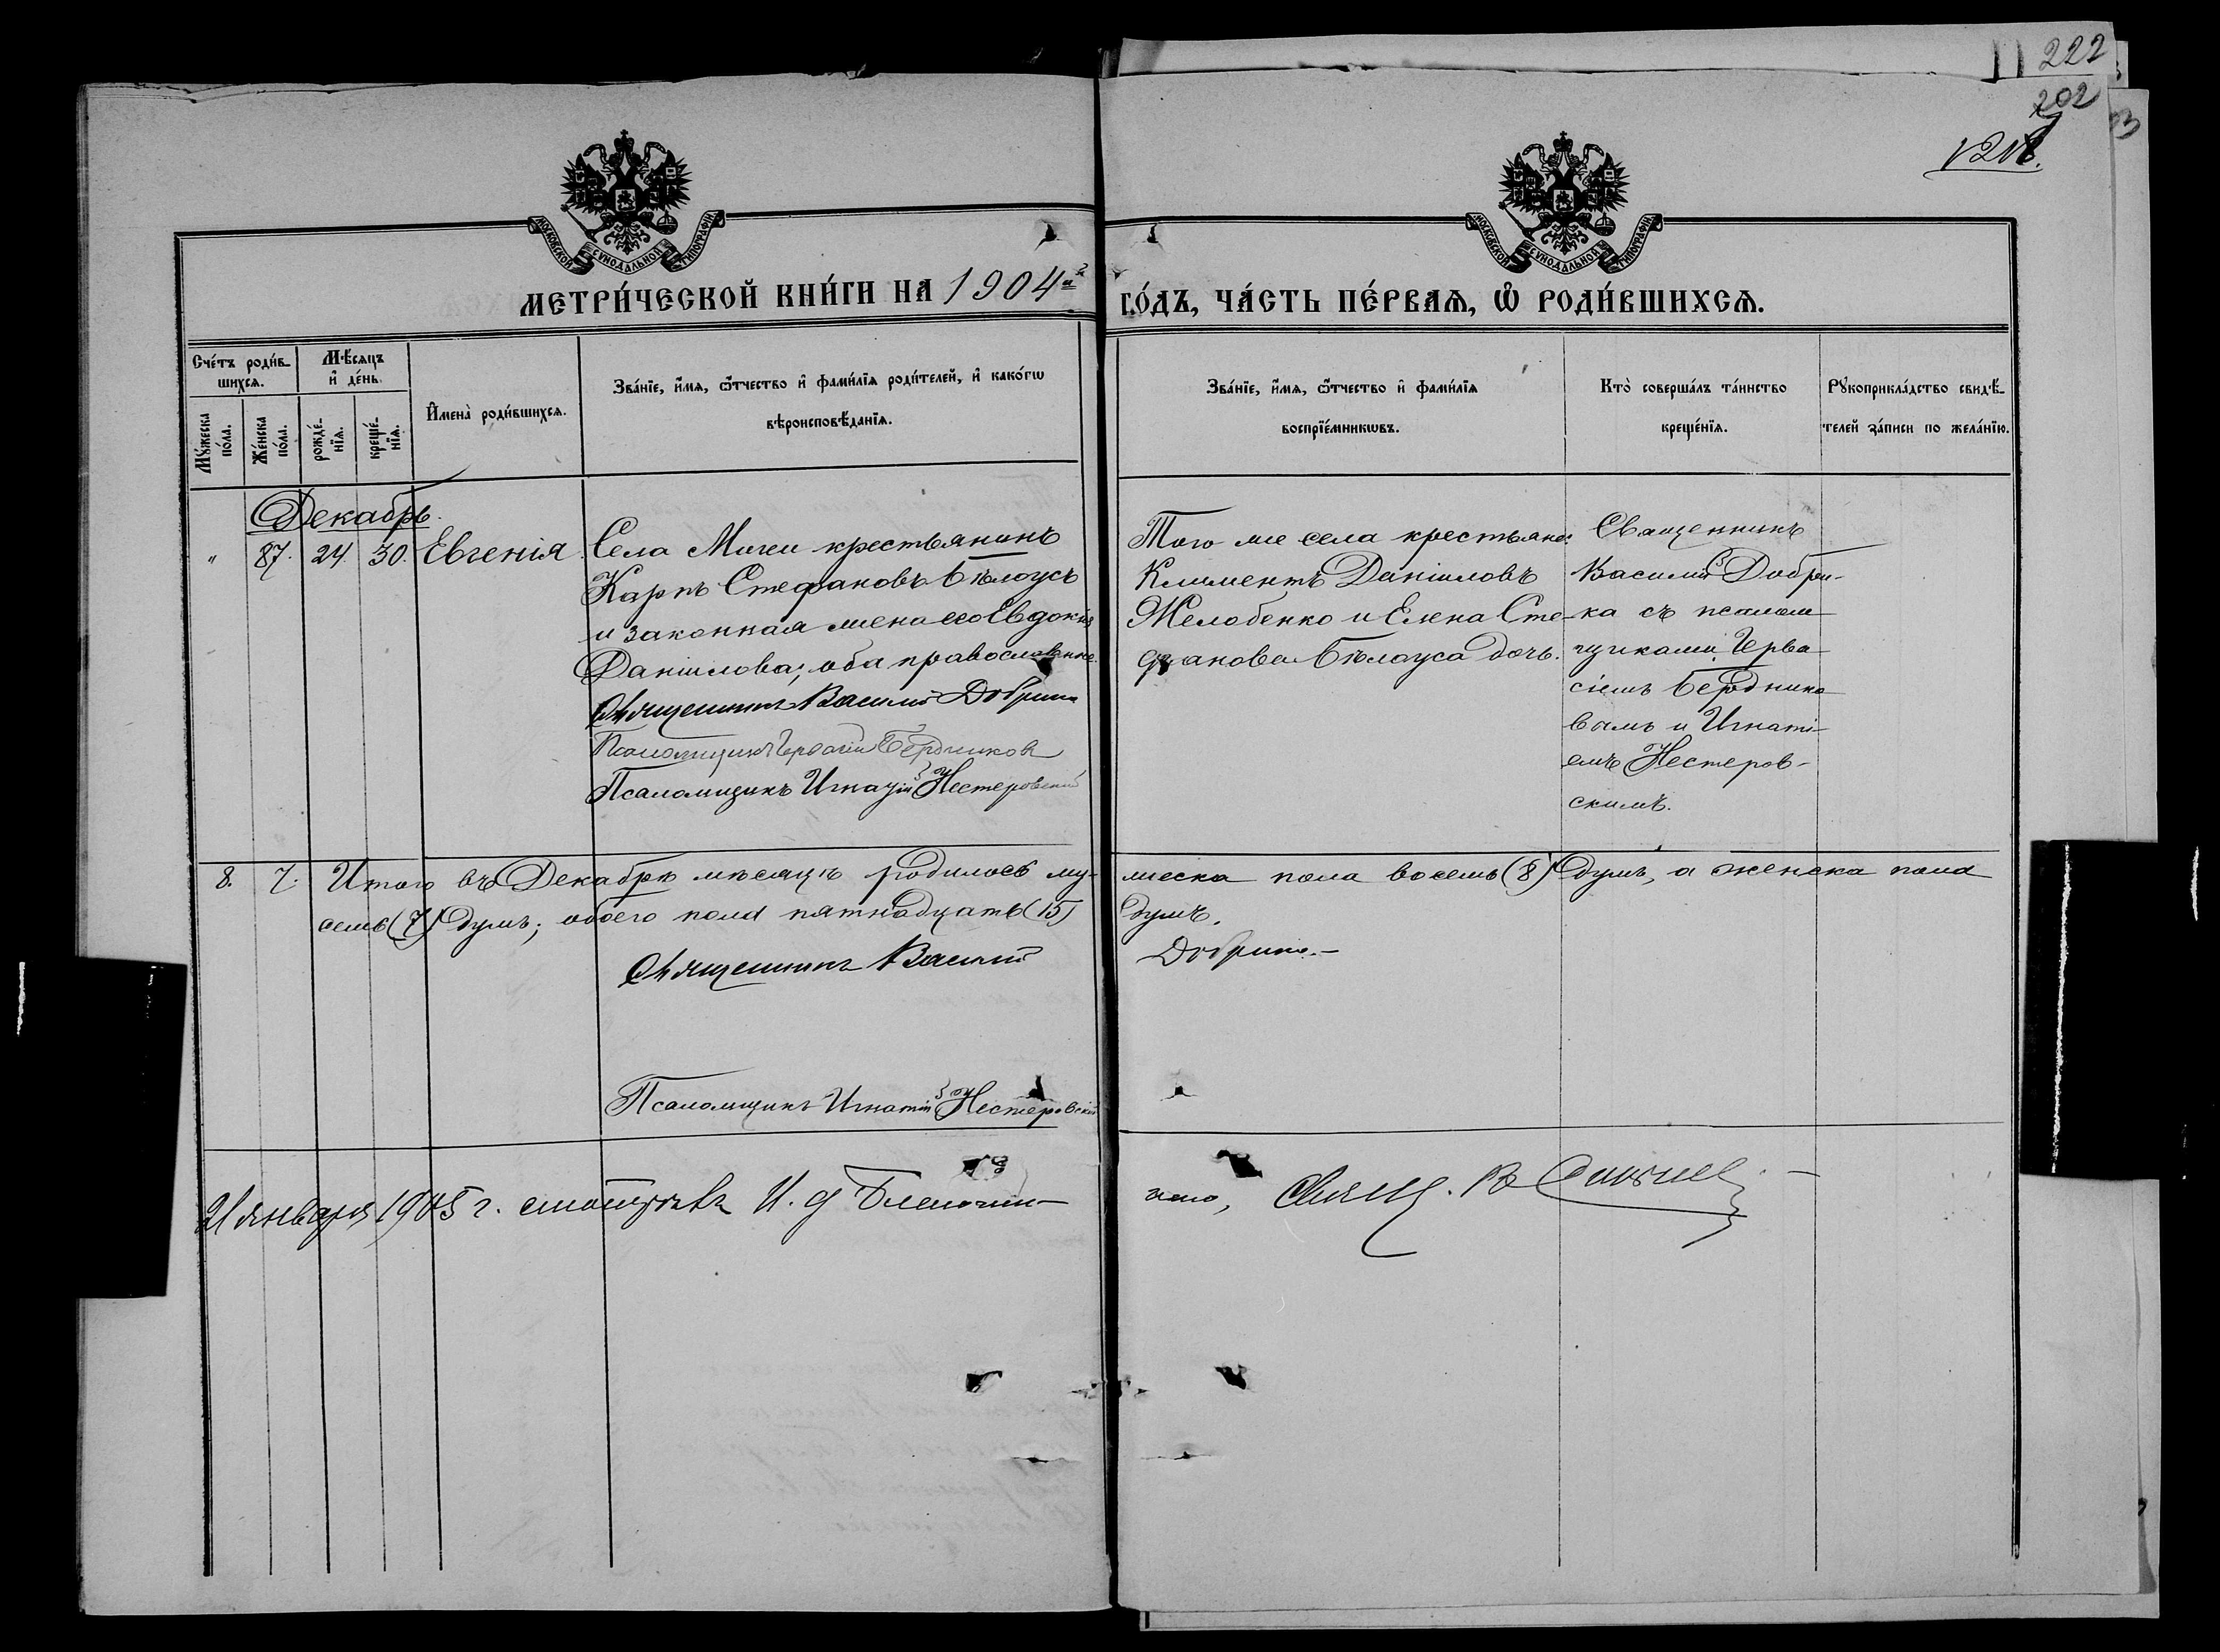 222
202
МОСКОВСКОЙ СѴНОДАЛЬНОЙ ТИПОГРАФІИ
МОСКОВСКОЙ СѴНОДАЛЬНОЙ ТИПОГРАФІИ
МЕТРИ́ЧЕСКОЙ КНИ́ГИ НА 1904й
ГО́ДЪ, ЧА́СТЬ ПЕ́РВАѦ, Ѡ҆ РОДИ́ВШИХСѦ.
Сче́тъ роди́в-
шихсѧ.
Мѣ́сяцъ
и҆ де́нь.
Мꙋ́жеска
по́ла.
Же́нска
по́ла.
рожде́-
нїѧ.
креще́-
нїѧ.
И҆мена̀ роди́вшихсѧ.
Зва́нїе, и҆́мѧ, ѻ҆́тчество и҆ фами́лїѧ роди́телей, и҆ како́гѡ
вѣроисповѣ́данїѧ.
Зва́нїе, и҆́мѧ, ѻ҆́тчество и҆ фами́лїѧ
воспрїе́мникѡвъ.
Кто̀ соверша́лъ та́инство
креще́нїѧ.
Рꙋкоприкла́дство свидѣ́-
телей за́писи по жела́нїю.
Декабрь.
" 87. 24. 30. Евгенія.
Села Мачехи крестьянинъ
Карпъ Стефановъ Бѣлоусъ
и законная жена его Евдокія
Даніилова; оба православные.
Священникъ Василій Добрика
Псаломщикъ Гервасій Бердников
Псаломщикъ Игнатій Нестеровскій
Того же села крестьяне:
Климентъ Даніиловъ
Желобенко и Елена Сте-
фанова Бѣлоуса дочь.
Священникъ
Василій Добри-
ка съ псалом
щиками Герва
сіемъ Бердника
вымъ и Игнаті-
емъ Нестеров-
скимъ.
8. 7. Итого въ Декабрѣ мѣсяцѣ родилось му-
жеска пола восемь (8) душъ, а женска пола
семь (7) душъ; обоего пола пятнадцать (15)
душъ.
Священникъ Василій
Добрика.-
Псаломщикъ Игнатій Нестеровскій
21 января 1905 г. смотрѣлъ И. д Благочин-
наго, Свящ. В